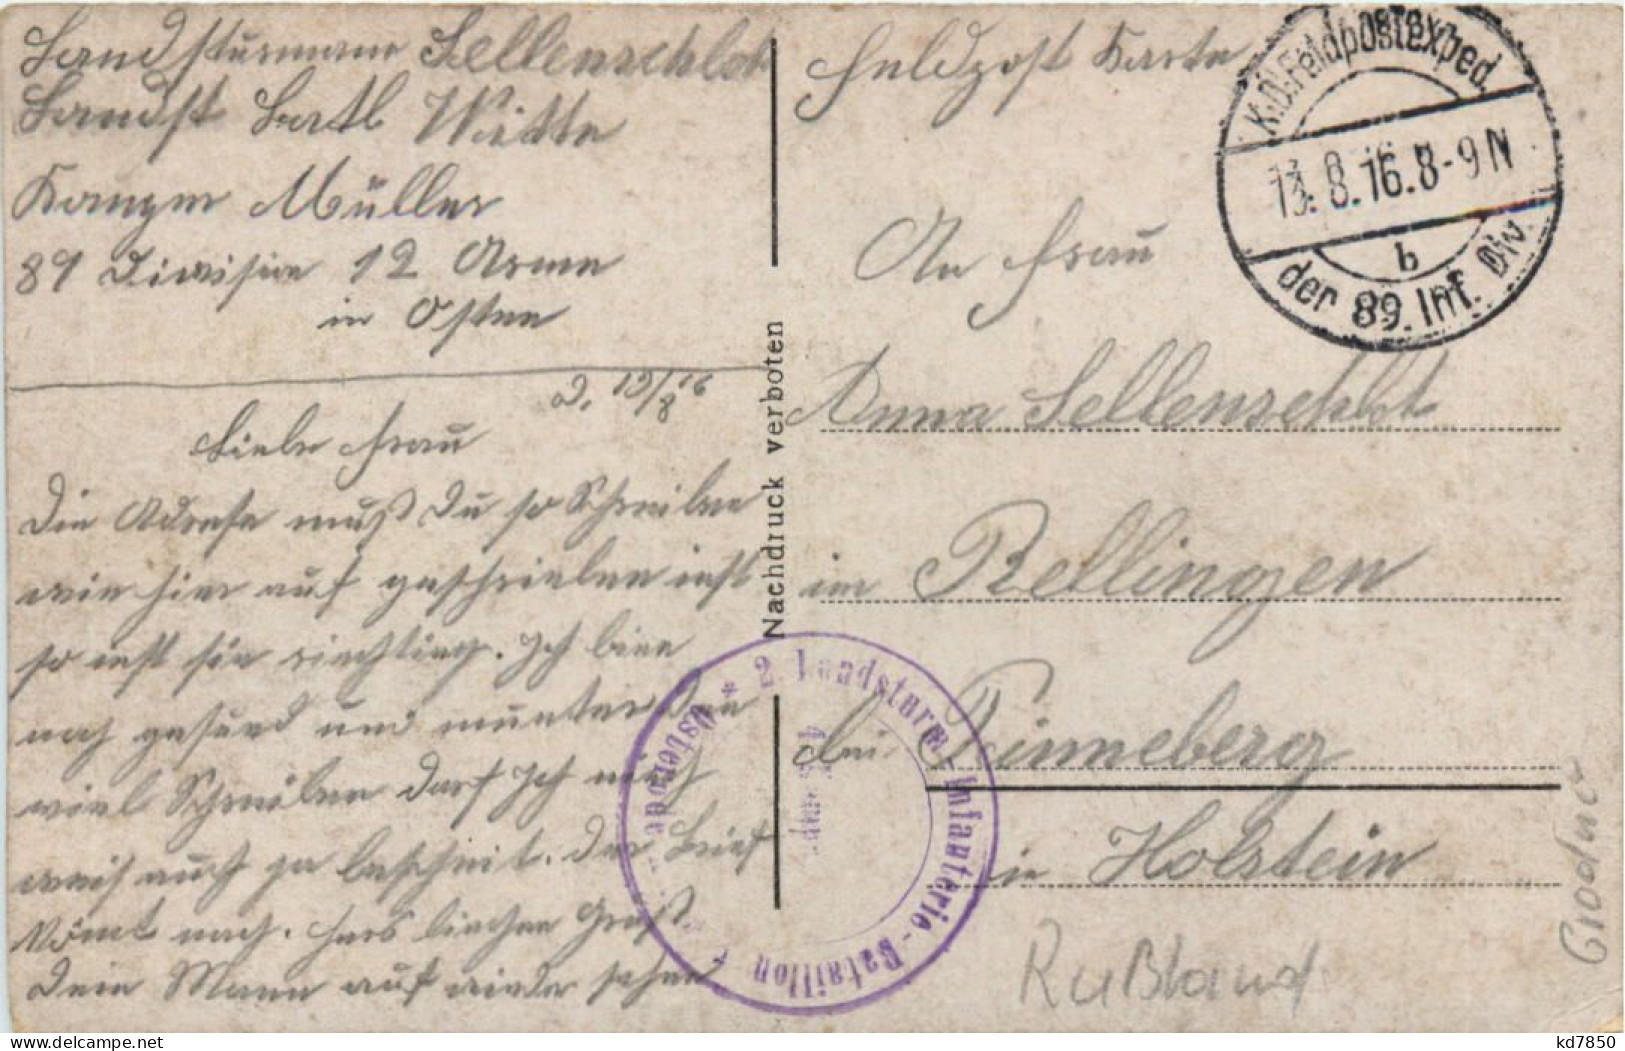 Landsturmmann Sellenschlok
Landst Batl Witte
Kompn Müller
89 Division 12 Armee
in Osten
D. 13/8 16
Liebe Frau
Die Adresse muß Du so Schreiben
wie hier auf geschrieben ist
so ist sie richtig. Ich bin
noch gesund und munter den
viel Schreiben darf Ich nicht
weist auch ja bescheit. Der Brief
kömt nach. Herzlichen Gruß
Dein Mann auf wieder sehen
Nachdruck verboten
Feldpost Karte
K.D. Feldpostexped.
13.8.16. 8-9 N
b
der 89. Inf. Div.
An Frau
Anna Sellenschlok
in Rellingen
bei Pinneberg
in Holstein
* 2 Landsturm-Infanterie-Bataillon
Osterode
Rußland
Grodno
kd7850